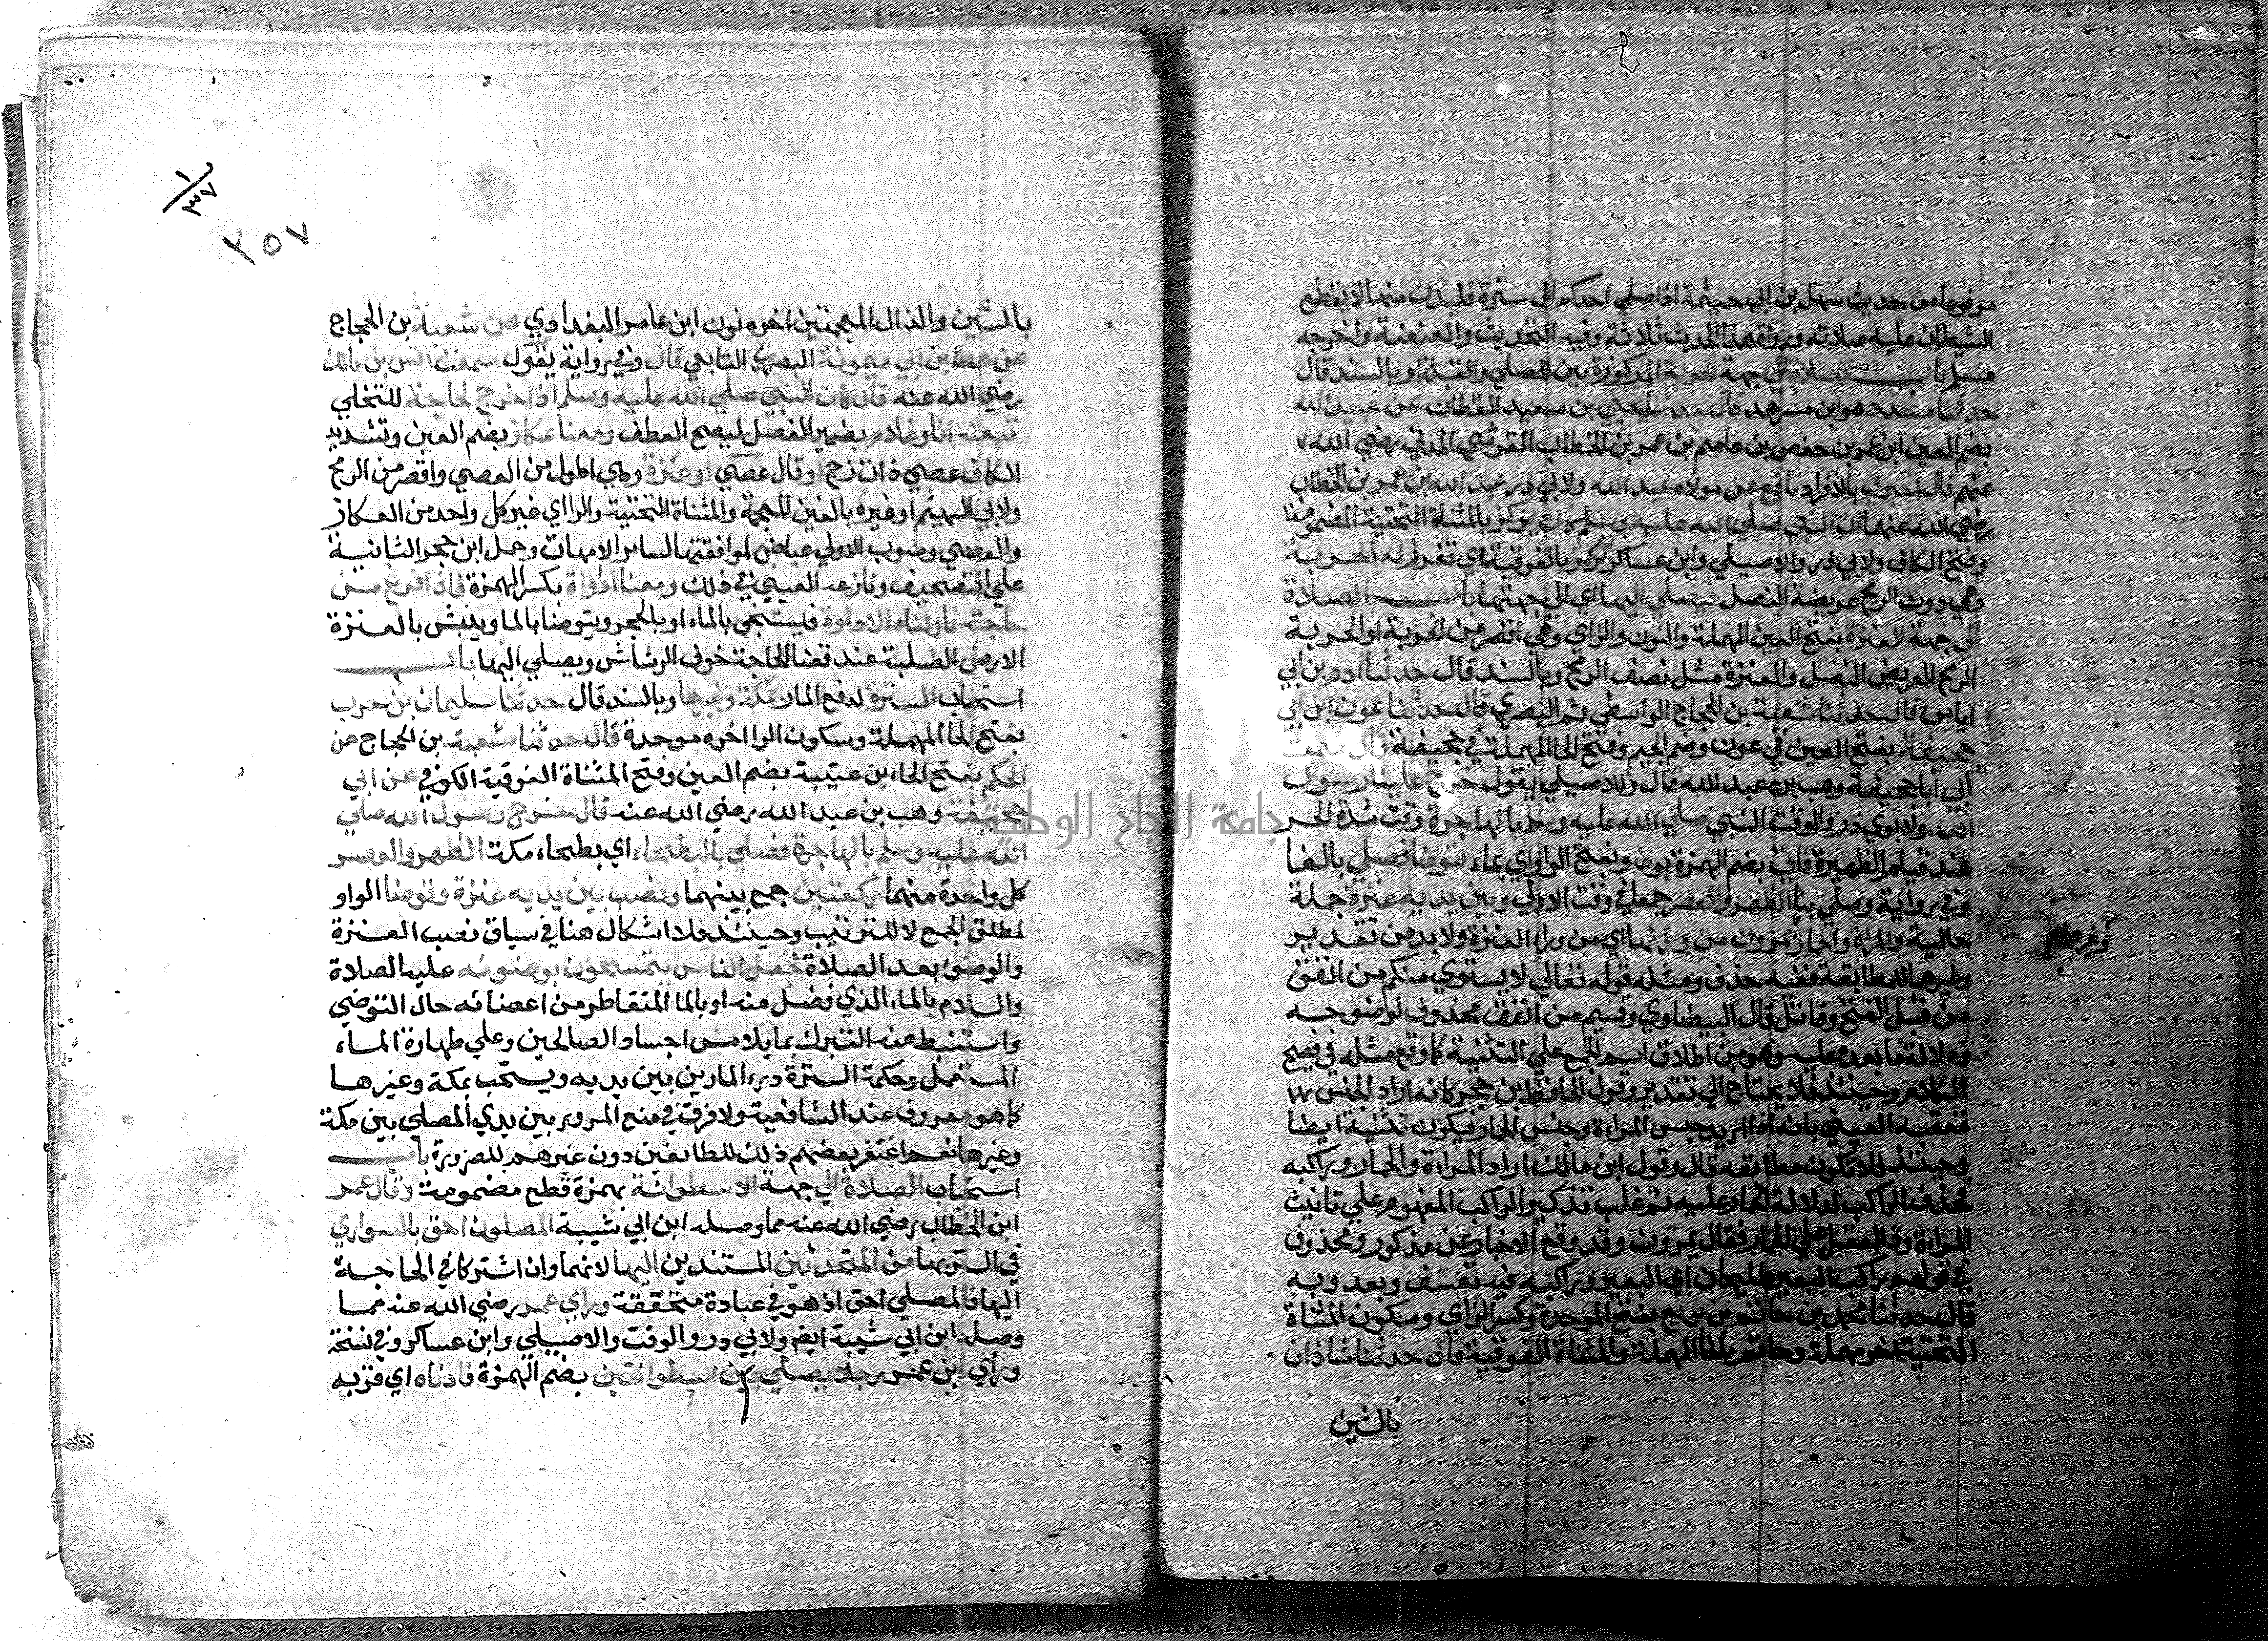 مرفوعا من حديث سهل بن ابي حيثمة اذا صلي احدكم الي سترة فليدن منها لا يقطع
الشيطان عليه صلاته ورواة هذا الحديث ثلاثة وفيه التحديث والعنعنة واخرجه
مسلم باب الصلاة الي جهة الحربة المركوزة بين المصلي والقبلة وبالسند قال
حدثنا مسدد هو ابن مسرهد قال حدثنا يحيي بن سعيد القطان عن عبيد الله
بضم العين ابن عمر بن حفص بن عاصم بن عمر بن الخطاب القرشي المدني رضي الله
عنهم قال اخبرني بالافراد نافع عن مولاه عبد الله ولابي ذر عبد الله بن عمر بن الخطاب
رضي الله عنهما ان النبي صلي الله عليه وسلم كان يركز بالمثناة التحتية المضمومة
وفتح الكاف ولابي ذر والاصيلي وابن عساكر تركز بالفوقية اي تغرز له الحربة
وهي دون الرمح عريضة النصل فيصلي اليها اي الي جهتها باب الصلاة
الي جهة العنزة بفتح العين المهملة والنون والزاي وهي اقصر من الحربة او الحربة
الرمح العريض النصل والعنزة مثل نصف الرمح وبالسند قال حدثنا ادم بن ابي
اياس قال حدثنا شعبة بن الحجاج الواسطي ثم البصري قال حدثنا عون ابن ابي
جحيفة بفتح العين في عون وضم الجيم وفتح الحا المهملة في جحيفة قال سمعت
ابي ابا جحيفة وهب بن عبد الله قال وللاصيلي يقول خرج علينا رسول
الله ولابوي ذر والوقت النبي صلي الله عليه وسلم بالهاجرة وقت شدة الحر
عند قيام الظهيرة فاتي بضم الهمزة بوضو بفتح الواو اي بماء فتوضا فصلي بالفا
وفي رواية وصلي بنا الظهر والعصر جمعا في وقت الاولي وبين يديه عنزة جملة
حالية والمراة والحمار يمرون من ورائها اي من وراء العنزة ولا بد من تقدير
وغيرهما للمطابقة ففيه حذف ومثله قوله تعالي لا يستوي منكم من انفق
من قبل الفتح وقاتل قال البيضاوي وقسيم من انفق محذوف لوضوحه
ودلالة ما بعده عليه وهو من اطلاق اسم الجمع علي التثنية كما وقع مثله في فصيح
الكلام وحينئذ فلا يحتاج الي تقدير وقول الحافظ ابن حجر كانه اراد الجنس
تعقبه العيني بانه اذا اريد جنس المراة وجنس الحمار فيكون تثنية ايضا
وحينئذ فلا تكون مطابقة قال وقول ابن مالك اراد المراة والحمار وراكبه
فحذف الراكب لدلالة الحمار عليه ثم غلب تذكير الراكب المفهوم علي تانيث
المراة وذا العقل علي الحمار فقال يمرون وقد وقع الاخبار عن مذكور ومحذوف
في قولهم راكب البعير طليحان اي البعير وراكبه فيه تعسف وبعد وبه
قال حدثنا محمد بن حاتم بن بزيع بفتح الموحدة وكسر الزاي وسكون المثناة
التحتية اخره مهملة وحاتم بالحا المهملة والمثناة الفوقية قال حدثنا شاذان
بالشين
١
٣٧
٢٥٧
بالشين والذال المعجمتين اخره نون ابن عامر البغدادي عن شعبة بن الحجاج
عن عطا بن ابي ميمونة البصري التابعي قال وفي رواية يقول سمعت انس بن مالك
رضي الله عنه قال كان النبي صلي الله عليه وسلم اذا خرج لحاجته للتخلي
تبعته انا وغلام بضمير الفصل ليصح العطف ومعنا عكاز بضم العين وتشديد
الكاف عصي ذات زج او قال عصي او عنزة وهي اطول من العصي واقصر من الرمح
ولابي الهيثم او غيره بالغين المعجمة والمثناة التحتية والراي غير كل واحد من العكاز
والعصي وصوب الاولي عياض لموافقتها لساير الامهات وحمل ابن حجر الثانية
علي التصحيف ونازعه العيني في ذلك ومعنا اداوة بكسر الهمزة فاذا فرغ من
حاجته ناولناه الاداوة فيستنجي بالماء او بالحجر ويتوضا بالما وينبش بالعنزة
الارض الصلبة عند قضا الحاجة خوف الرشاش ويصلي اليها باب
استحباب السترة لدفع المار بمكة وغيرها وبالسند قال حدثنا سليمان بن حرب
بفتح الحا المهملة وسكون الرا اخره موحدة قال حدثنا شعبة بن الحجاج عن
الحكم بفتح الحاء بن عتيبة بضم العين وفتح المثناة الفوقية الكوفي عن ابي
جحيفة وهب بن عبد الله رضي الله عنه قال خرج رسول الله صلي
الله عليه وسلم بالهاجرة فصلي بالبطحاء اي بطحاء مكة الظهر والعصر
كل واحدة منهما ركعتين جمع بينهما ونصب بين يديه عنزة وتوضا الواو
لمطلق الجمع لا للترتيب وحينئذ فلا اشكال هنا في سياق نصب العنزة
والوضوء بعد الصلاة فجعل الناس يتمسحون بوضوئه عليه الصلاة
والسلام بالماء الذي فضل منه او بالما المتقاطر من اعضائه حال التوضي
واستنبط منه التبرك بما يلامس اجساد الصالحين وعلي طهارة الماء
المستعمل وحكمة السترة درء المارين بين يديه ويستحب بمكة وغيرها
كما هو معروف عند الشافعية ولا فرق في منع المرور بين يدي المصلي بين مكة
وغيرها نعم اغتفر بعضهم ذلك للطائفين دون غيرهم للضرورة باب
استحباب الصلاة الي جهة الاسطوانة بهمزة قطع مضمومة وقال عمر
ابن الخطاب رضي الله عنه مما وصله ابن ابي شيبة المصلون احق بالسواري
في التستر بها من المتحدثين المستندين اليها لانهما وان اشتركا في الحاجة
اليها فالمصلي احق اذ هو في عبادة متحققة وراي عمر رضي الله عنه مما
وصله ابن ابي شيبة ايضا ولابي ذر والوقت والاصيلي وابن عساكر وفي نسخة
وراي ابن عمر رجلا يصلي بين اسطوانتين بضم الهمزة فادناه اي قربه
جامعة النجاح الوطنية